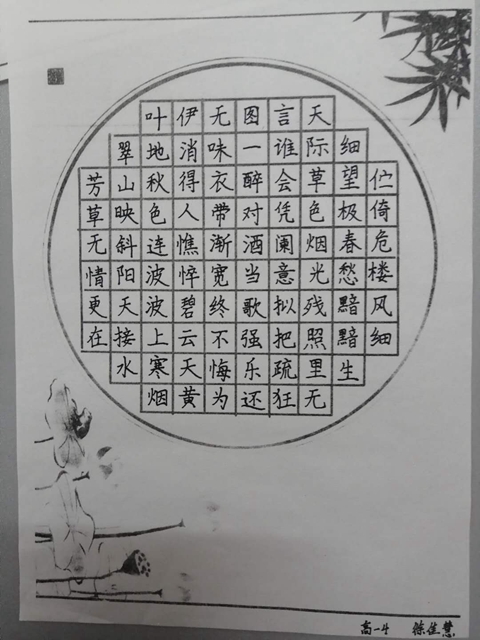 伫倚危楼风细
细望极春愁黯黯生
天际草色烟光残照里无
言谁会凭阑意拟把疏狂
图一醉对酒当歌强乐还
无味衣带渐宽终不悔为
伊消得人憔悴碧云天黄
叶地秋色连波波上寒烟
翠山映斜阳天接水
芳草无情更在
高一 佳慧